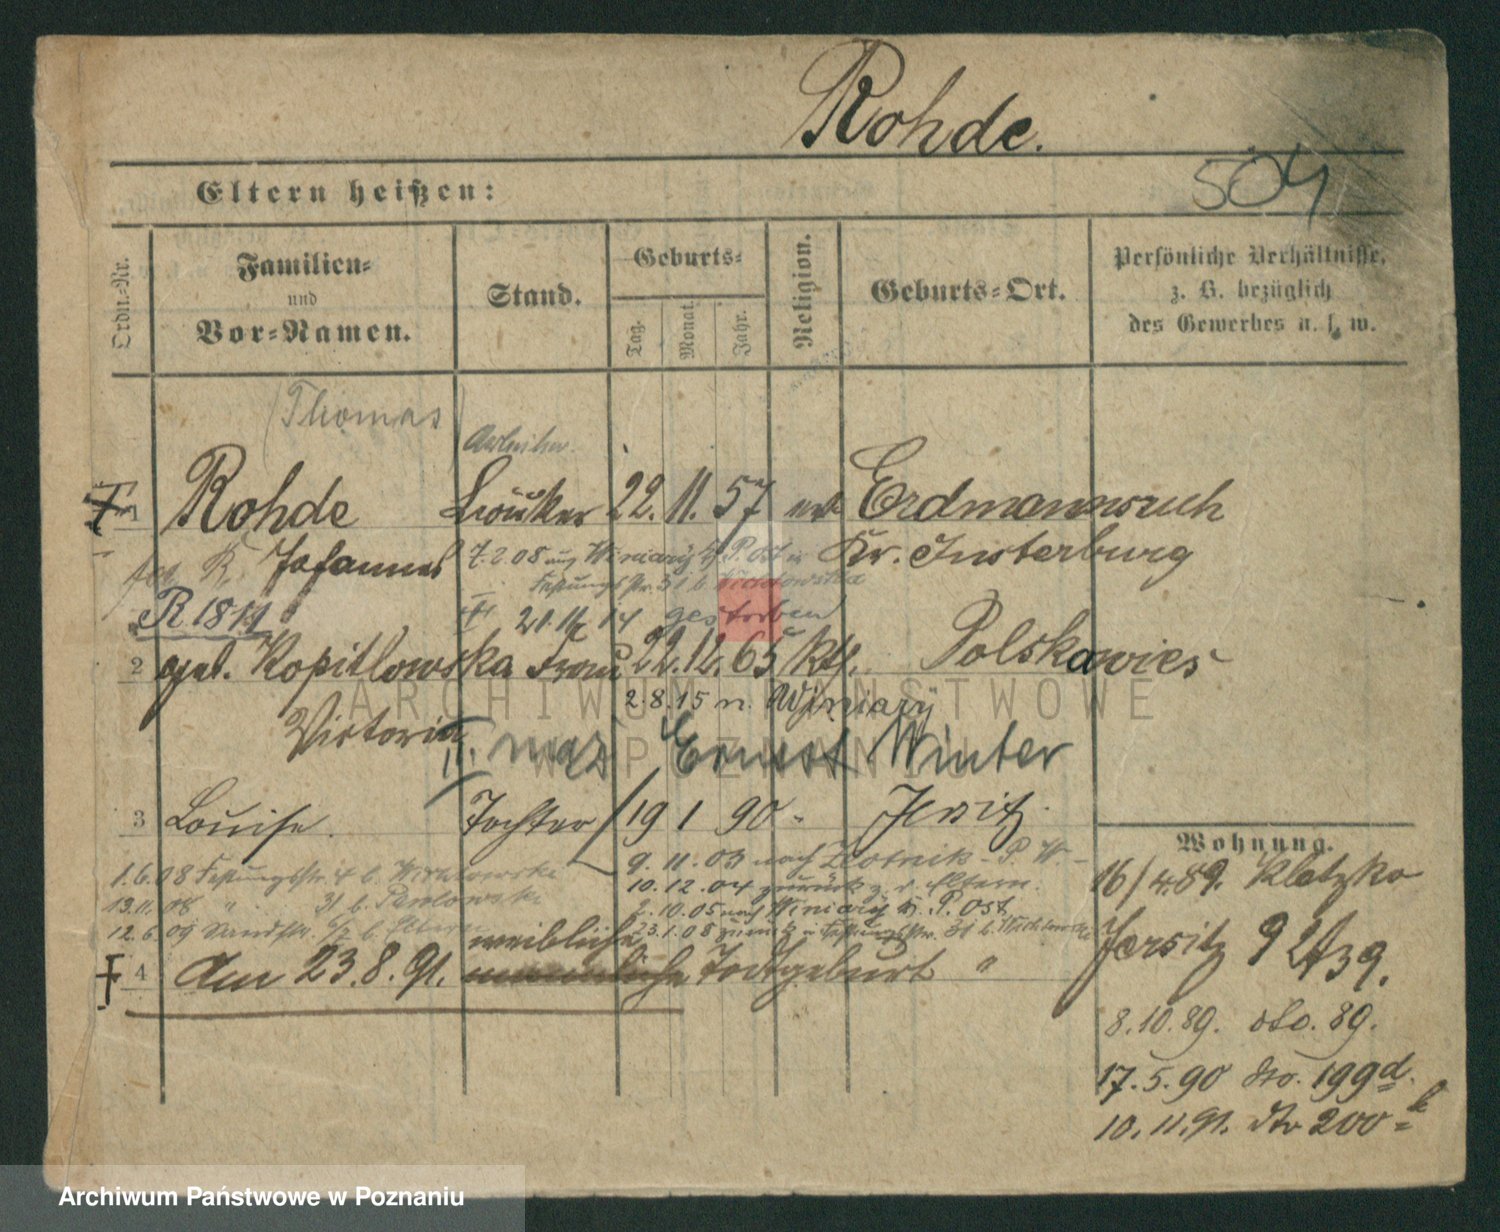 Rohde.
504
Eltern heißen:
Ordn.-Nr.
Familien-
und
Vor-Namen.
Stand.
Geburts-
Tag.
Monat.
Jahr.
Religion.
Geburts-Ort.
Persönliche Verhältnisse,
z. B. bezüglich
des Gewerbes u. s. w.
(Thomas)
Arbeiter
1 Rohde 22. 11. 57 Erdmannsruh
Johannes 7.2.08 Winiary P. Ost Kr. Insterburg
Festungsstr. 31 b.
R 1811 21. 14 gestorben
2 geb. Kopitlowska Frau 22. 12. 65 kth. Polskawies
2.8.15 n. Winiary
Victoria II. mąż Ernest Winter
3 Louise. Tochter 19 1 90 Jersitz.
9. 11. 03 nach Zlotnik - P. W-
1.6.08 Festungsstr. 4 b.
10. 12. 04 zurück z. d. Eltern.
13.11.08 " 31 b. Pawlowski
2. 10. 05 nach Winiary P. Ost
12. 6. 09 Sandstr. b. Eltern
23.1.08 Festungsstr. 31 b.
weibliche
4 Am 23. 8. 91. Todtgeburt "
Wohnung.
16/4. 89. Kletzko
Jersitz 9
8. 10. 89. dto. 89.
17. 5. 90 dto. 199d.
10. 11. 91. dto 200
ARCHIWUM PAŃSTWOWE
W POZNANIU
Archiwum Państwowe w Poznaniu